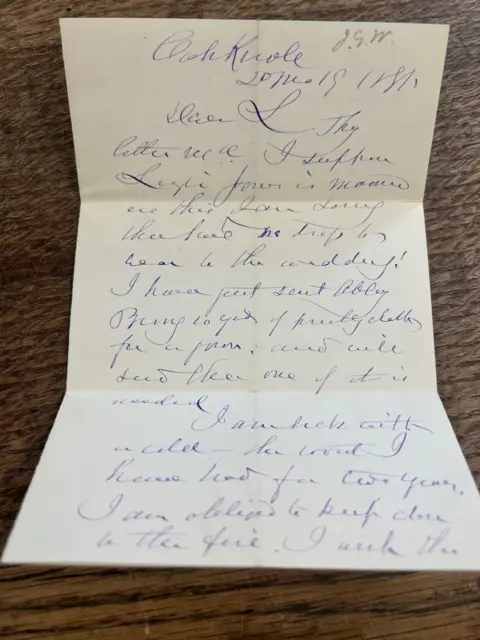 J.G.W.
Oak Knoll
20 Mo 19 1881.
Dear L. Thy
letter rec'd. I suppose
Lizzie is married
ere this. I am sorry
thee had no to
wear to the wedding!
I have just sent Abby
10 yds of pretty
for a gown. and will
send thee one if it is
needed
I am sick with
a cold — the worst I
have had for two years.
I am obliged to keep close
to the fire. I wish the